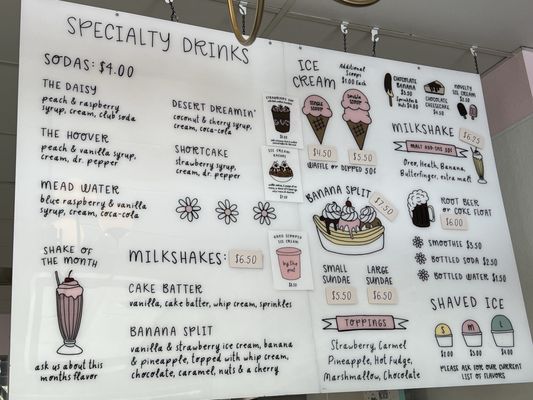 SPECIALTY DRINKS
SODAS: $4.00
THE DAISY
peach & raspberry
syrup, cream, club soda
THE HOOVER
peach & vanilla syrup,
cream, dr. pepper
MEAD WATER
blue raspberry & vanilla
syrup, cream, coca-cola
DESERT DREAMIN'
coconut & cherry syrup,
cream, coca-cola
SHORTCAKE
strawberry syrup,
cream, dr. pepper
SHAKE OF
THE MONTH
ask us about this
months flavor
MILKSHAKES:
$6.50
CAKE BATTER
vanilla, cake batter, whip cream, sprinkles
BANANA SPLIT
vanilla & strawberry ice cream, banana
& pineapple, topped with whip cream,
chocolate, caramel, nuts & a cherry
ICE
CREAM
Additional
Scoops
$1.00 Each
SINGLE
SCOOP
DOUBLE
SCOOP
$4.50
$5.50
WAFFLE OR DIPPED 50¢
BANANA SPLIT
$7.50
SMALL
SUNDAE
$5.50
LARGE
SUNDAE
$6.50
TOPPINGS
Strawberry, Carmel
Pineapple, Hot Fudge,
Marshmallow, Chocolate
CHOCOLATE
BANANA
Sprinkles &
Nuts
CHOCOLATE
CHEESECAKE
NOVELTY
ICE CREAM
MILKSHAKE
$6.75
MALT ADD-ONS 50¢
Oreo, Heath, Banana,
Butterfinger, extra malt
ROOT BEER
OR COKE FLOAT
$6.00
SMOOTHIE $5.50
BOTTLED SODA $2.50
BOTTLED WATER $1.50
SHAVED ICE
S
M
L
$2.00
$3.00
$4.00
PLEASE ASK FOR OUR CURRENT
LIST OF FLAVORS